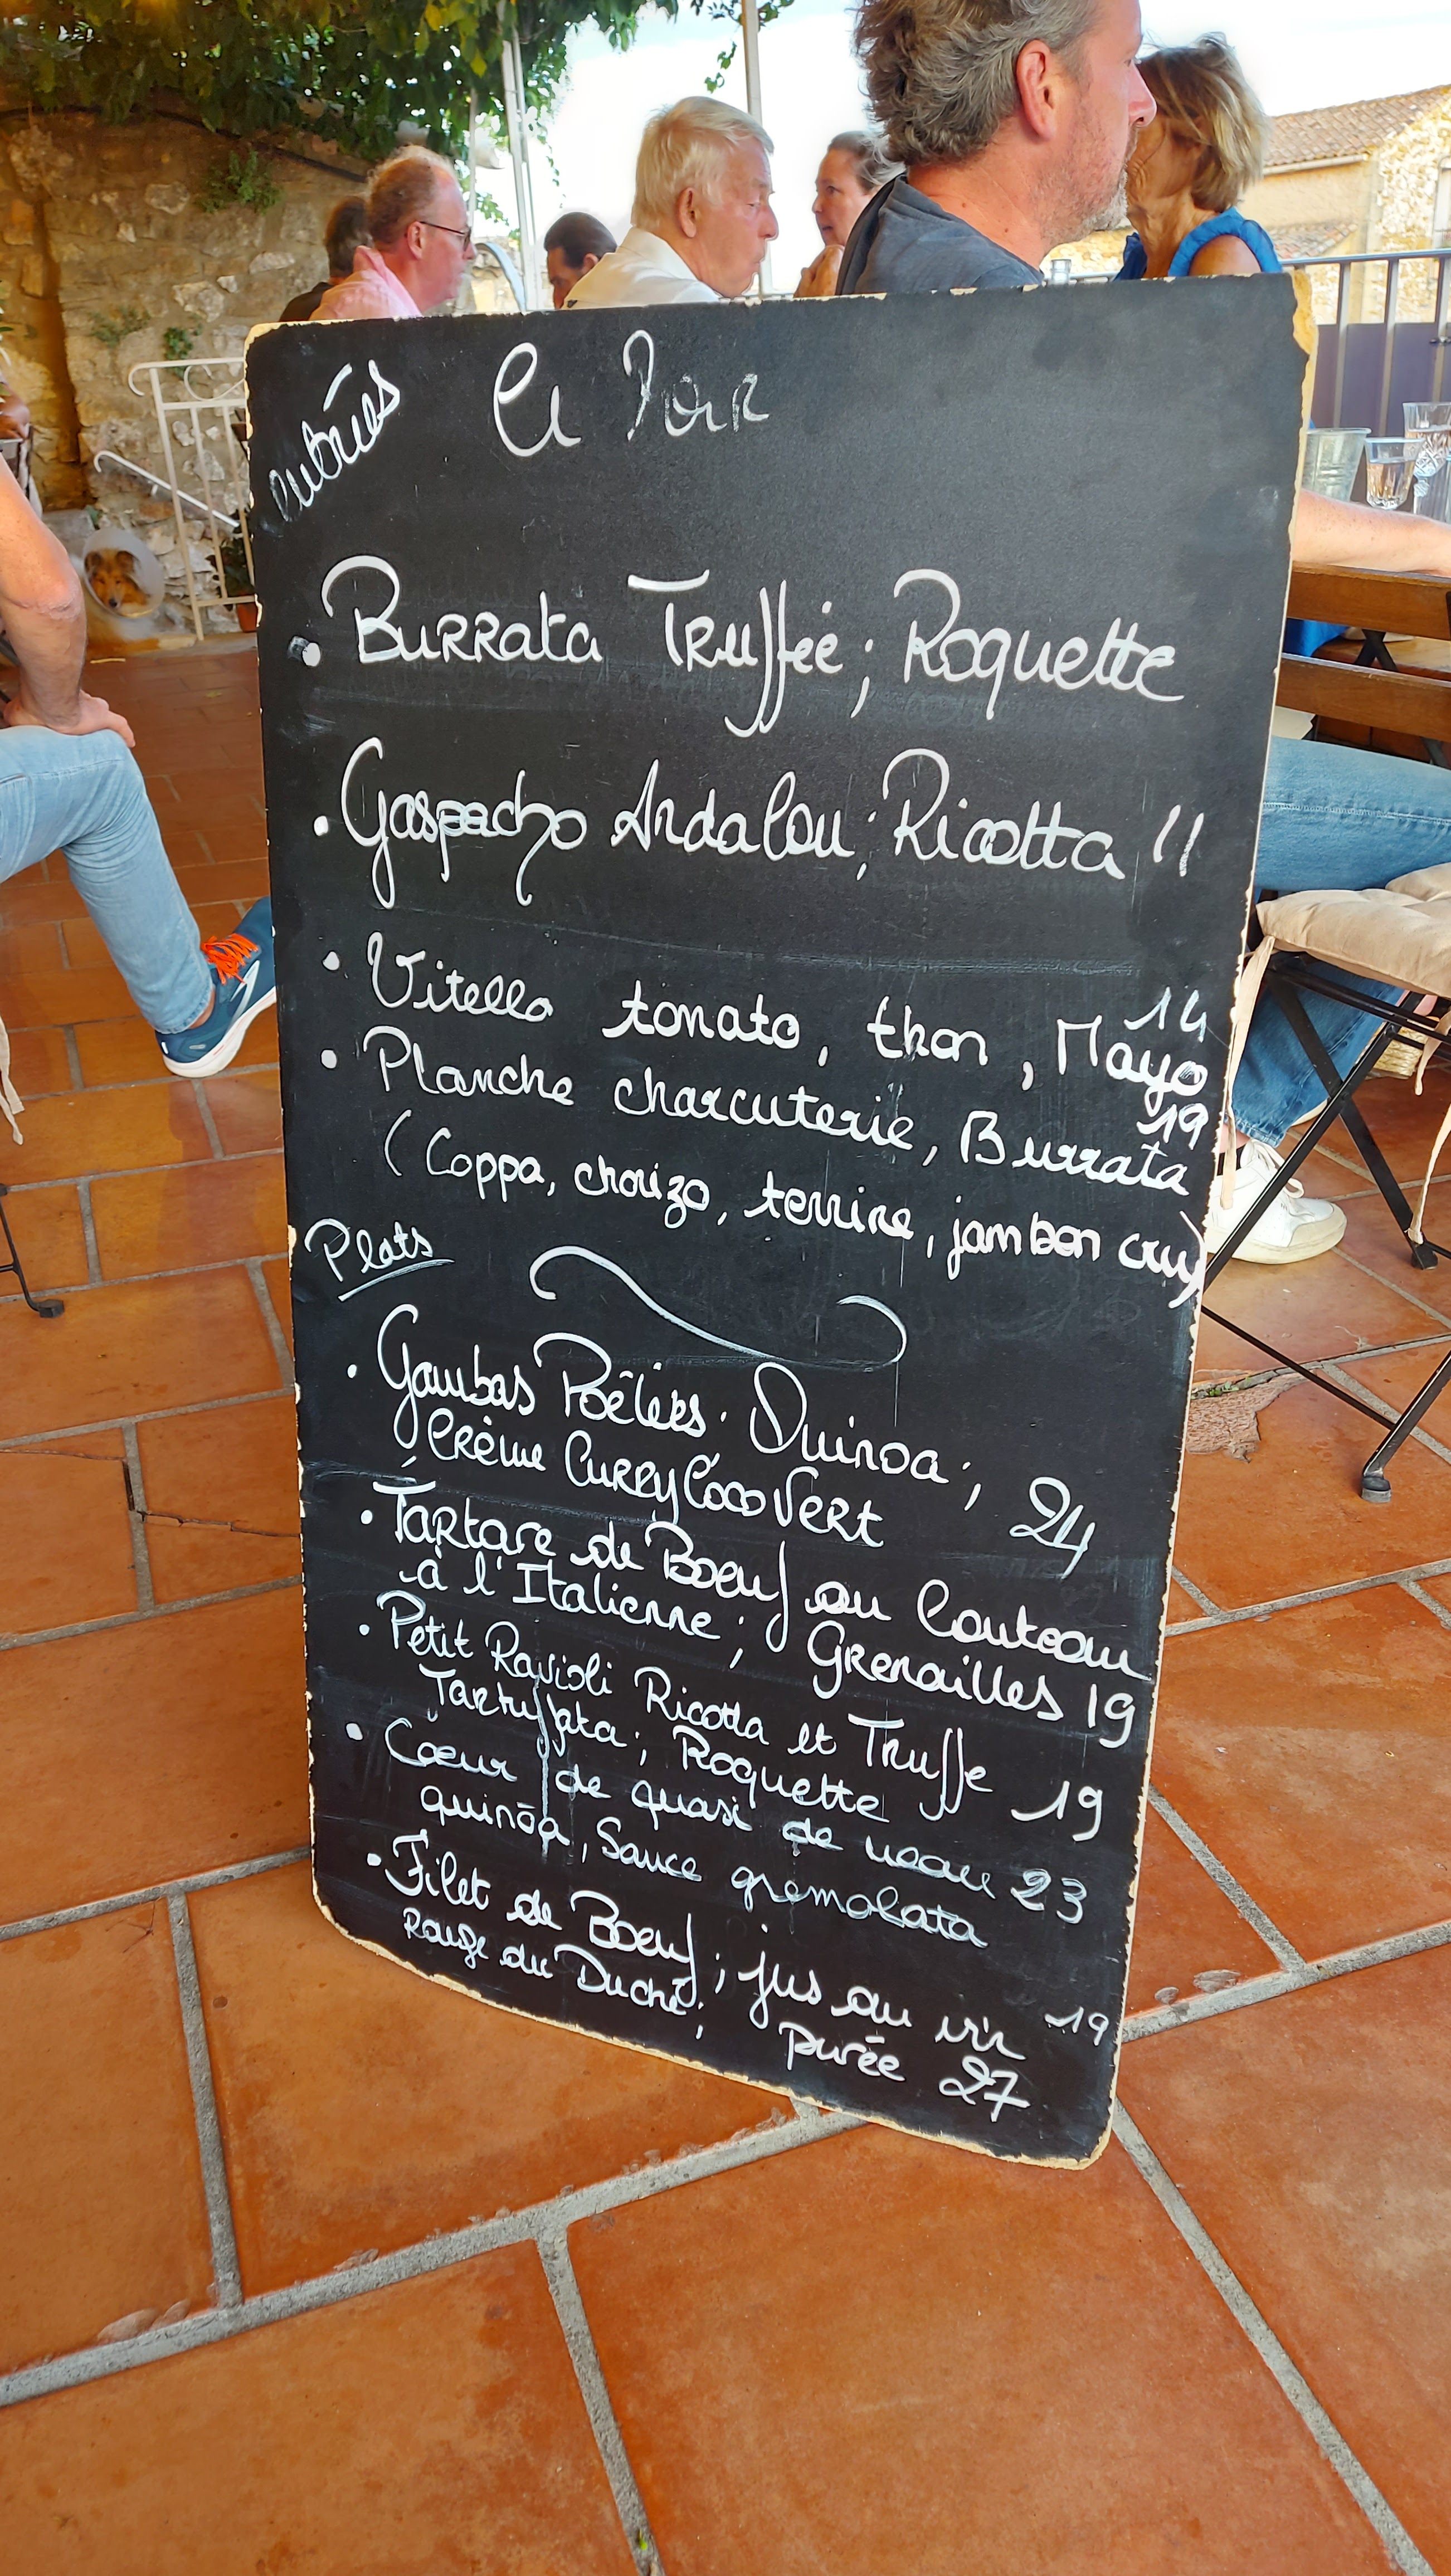 entrées
Ce Soir
• Burrata Truffée ; Roquette
• Gaspacho Andalou ; Ricotta 11
• Vitello tonato, thon, Mayo 14
• Planche charcuterie, Burrata 19
(Coppa, chorizo, terrine, jambon cru)
Plats
• Gambas Poêlées. Quinoa ; 24
Crème Curry Coco Vert
• Tartare de Boeuf au Couteau
à l'Italienne ; Grenailles 19
• Petit Ravioli Ricotta et Truffe 19
Tartuffata ; Roquette
• Cœur de quasi de veau 23
quinōa, Sauce gremolata
• Filet de Boeuf ; jus au vin 19
Rouge du Duché ; purée 27